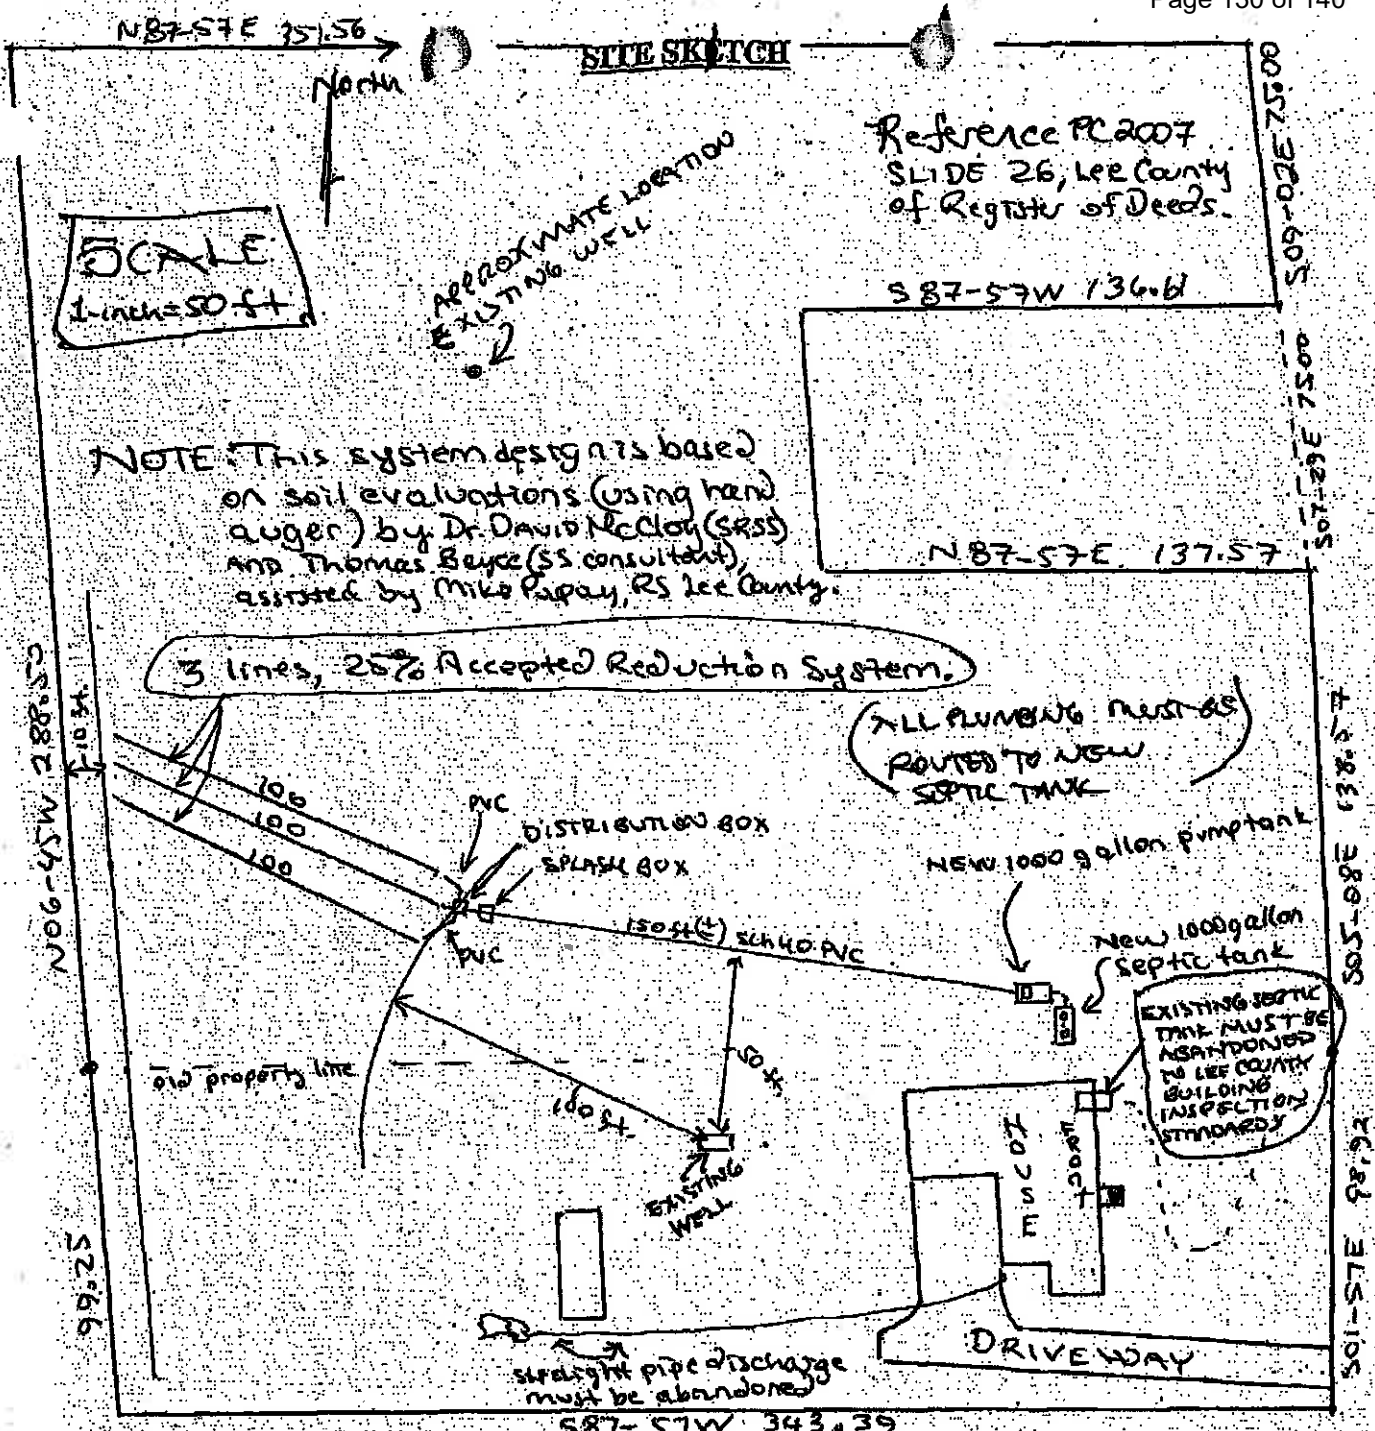 Page 130 of 140
N87-57E 351.56
SITE SKETCH
North
S09-02E 75.00
Reference PC2007
SLIDE 26, Lee County
of Register of Deeds.
SCALE
1-inch=50-ft
APPROXIMATE LOCATION
EXISTING WELL
S87-57W 136.61
S07-29E 75.00
N87-57E 137.57
NOTE: This system design is based
on soil evaluations (using hand
auger) by Dr. DAVID McCloy (SRSS)
AND Thomas Boyce (SS consultant),
assisted by Mike Papay, RS Lee County.
3 lines, 25% Accepted Reduction System.
(ALL PLUMBING MUST BE
ROUTED TO NEW
SEPTIC TANK)
N06-45W 288.50
10 ft.
100
100
100
PVC
DISTRIBUTION BOX
SPLASH BOX
PVC
150 ft(±) Sch 40 PVC
NEW 1000 gallon pump tank
New 1000 gallon
septic tank
S05-08E
EXISTING SEPTIC
TANK MUST BE
ABANDONED
TO LEE COUNTY
BUILDING
INSPECTION
STANDARDS
old property line
50 ft.
100 ft.
EXISTING
WELL
HOUSE
FRONT
S01-57E 98.92
99.25
straight pipe discharge
must be abandoned
DRIVEWAY
S87-57W 343.39